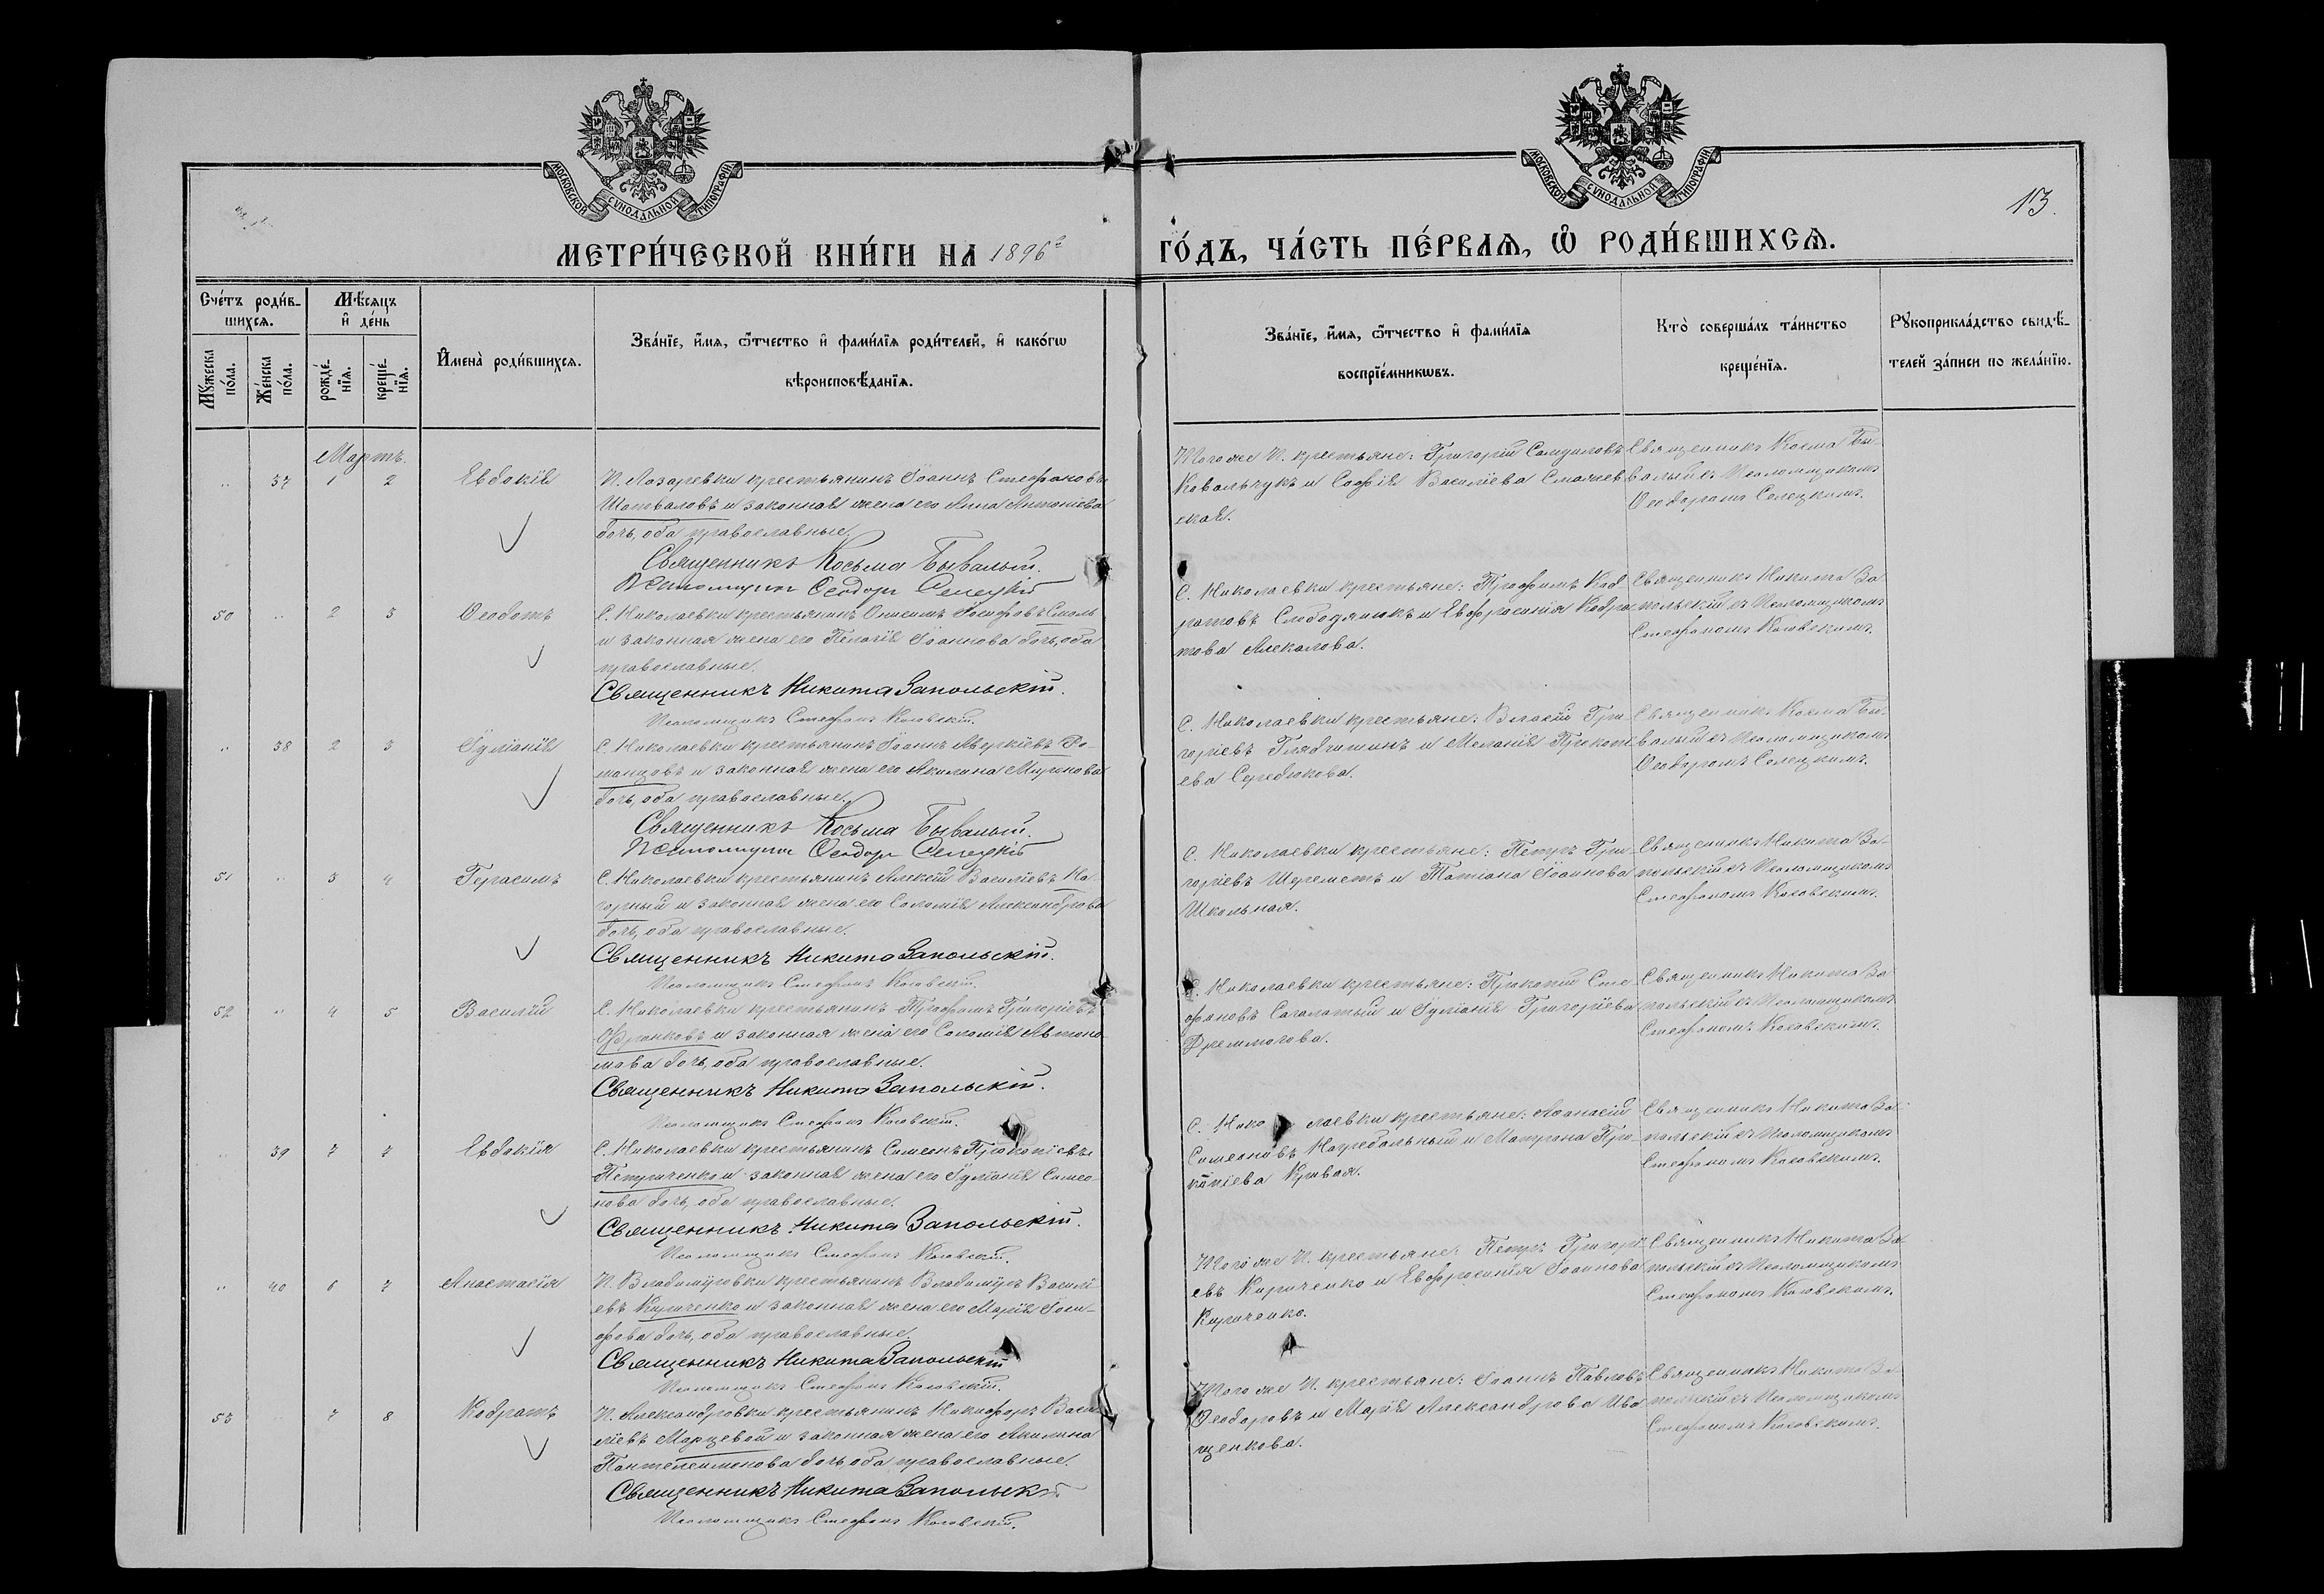 МОСКОВСКОЙ СѴНОДАЛЬНОЙ ТИПОГРАФІИ
МОСКОВСКОЙ СѴНОДАЛЬНОЙ ТИПОГРАФІИ
13.
МЕТРИ́ЧЕСКОЙ КНИ́ГИ НА 1896 ГО́ДЪ, ЧА́СТЬ ПЕ́РВАѦ, Ѡ҆ РОДИ́ВШИХСѦ.
Сче́тъ роди́в-
шихсѧ.
Мѣ́сѧцъ
и҆ де́нь
Мꙋ́жеска
по́ла.
Же́нска
по́ла.
рожде́-
нїѧ.
креще́-
нїѧ.
И҆мена̀ роди́вшихсѧ.
Зва́нїе, и҆́мѧ, ѻ҆́тчество и҆ фами́лїѧ роди́телей, и҆ како́гѡ
вѣроисповѣ́данїѧ.
Зва́нїе, и҆́мѧ, ѻ҆́тчество и҆ фами́лїѧ
воспрїе́мникѡвъ.
Кто̀ соверша́лъ та́инство
креще́нїѧ.
Рꙋкоприкла́дство свидѣ́-
телей за́писи по жела́нїю.
Мартъ.
37 1 2 Евдокія
П. Лазаревки крестьянинъ Іоаннъ Стефановъ
Шаповаловъ и законная жена его Анна Антоніева
дочь, оба православные.
Священникъ Косьма Бывалый.
Псаломщикъ Ѳеодоръ Селецкій
Того же П. крестьяне: Григорій
Ковальчукъ и Софія Василіева
ская.
Священникъ Косма Бы-
валый съ Псаломщикомъ
Ѳеодоромъ Селецкимъ.
50 2 3 Ѳеодотъ
С. Николаевки крестьянинъ Онисимъ Іосифовъ Смоль
и законная жена его Пелагія Іоаннова дочь, оба
православные.
Священникъ Никита Запольскій.
Псаломщикъ Стефанъ
С. Николаевки крестьяне: Трофимъ Код
ратовъ Слободянюкъ и Евфросинія Кодра
това
Священникъ Никита За
польскій съ Псаломщикомъ
Стефаномъ
38 2 3 Іуліанія
С. Николаевки крестьянинъ Іоаннъ Аверкіевъ Ро-
манцовъ и законная жена его Акилина Миронова
дочь, оба православные.
Священникъ Косьма Бывалый.
Псаломщикъ Ѳеодоръ Селецкій
С. Николаевки крестьяне: Власій Гри-
горіевъ и Меланія Прокопі
ева
Священникъ Косма Бы-
валый съ Псаломщикомъ
Ѳеодоромъ Селецкимъ.
51 3 4 Герасимъ
С. Николаевки крестьянинъ Алексій Василіевъ На-
горный и законная жена его Соломія Александрова
дочь, оба православные.
Священникъ Никита Запольскій.
Псаломщикъ Стефанъ
С. Николаевки крестьяне: Петръ Гри-
горіевъ Шереметъ и Татіана Іоаннова
Школьная.
Священникъ Никита За-
польскій съ Псаломщикомъ
Стефаномъ
52 4 5 Василій
С. Николаевки крестьянинъ Трофимъ Григоріевъ
и законная жена его Соломія Автоно-
мова дочь, оба православные.
Священникъ Никита Запольскій.
Псаломщикъ Стефанъ
С. Николаевки крестьяне: Прокопій Сте
фановъ и Іуліанія Григоріева
Священникъ Никита За
польскій съ Псаломщикомъ
Стефаномъ
39 7 7 Евдокія
С. Николаевки крестьянинъ Симеонъ Прокопіевъ
Петриченко и законная жена его Іуліанія Симео-
нова дочь, оба православные.
Священникъ Никита Запольскій.
Псаломщикъ Стефанъ
С. Николаевки крестьяне: Аѳанасій
Симеоновъ и Матрона Про-
копіева Кривая.
Священникъ Никита За-
польскій съ Псаломщикомъ
Стефаномъ
40 6 7 Анастасія
П. Владиміровки крестьянинъ Владиміръ Василі-
евъ Кириченко и законная жена его Марія Іоси-
фова дочь, оба православные.
Священникъ Никита Запольскій
Псаломщикъ Стефанъ
Того же П. крестьяне: Петръ Григорі-
евъ Кириченко и Евфросинія Іоаннова
Кириченко.
Священникъ Никита За-
польскій съ Псаломщикомъ
Стефаномъ
53 7 8 Кодратъ
П. Александровки крестьянинъ Никифоръ Васи
ліевъ Марцевой и законная жена его Акилина
Пантелеимонова дочь, оба православные.
Священникъ Никита Запольск
Псаломщикъ Стефанъ
Того же П. крестьяне: Іоаннъ Павловъ
Ѳеодоровъ и Марія Александрова Ива
щенкова.
Священникъ Никита За
польскій съ Псаломщикомъ
Стефаномъ